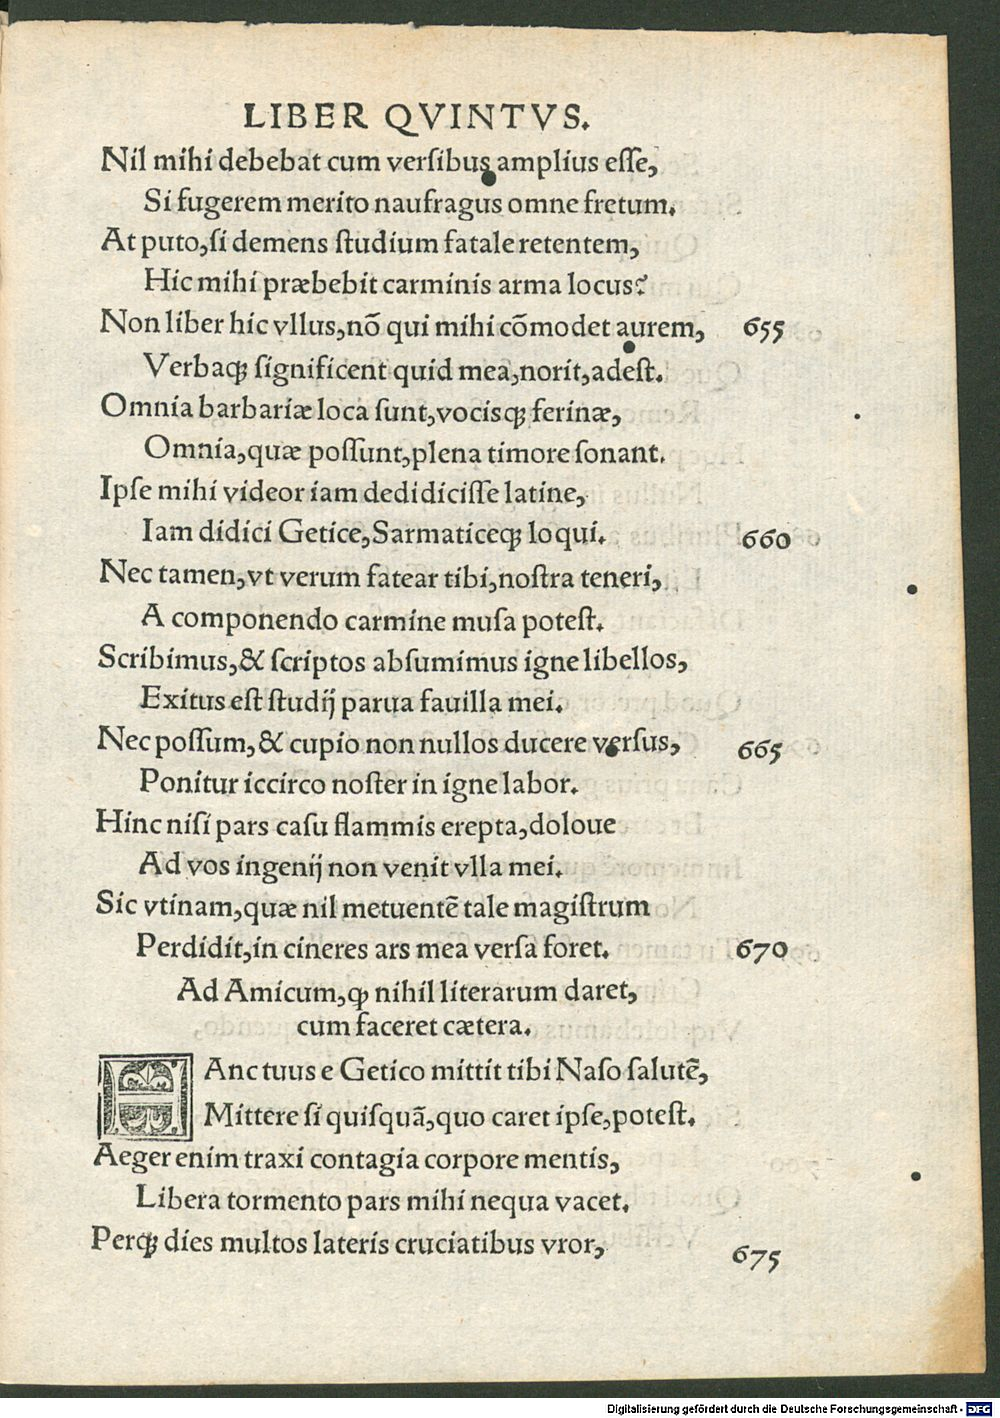 LIBER QVINTVS.
Nil mihi debebat cum versibus amplius esse,
Si fugerem merito naufragus omne fretum.
At puto, si demens studium fatale retentem,
Hic mihi præbebit carminis arma locus?
Non liber hic vllus, nō qui mihi cōmodet aurem, 655
Verbaqꝫ significent quid mea, norit, adest.
Omnia barbariæ loca sunt, vocisqꝫ ferinæ,
Omnia, quæ possunt, plena timore sonant.
Ipse mihi videor iam dedidicisse latine,
Iam didici Getice, Sarmaticeqꝫ loqui. 660
Nec tamen, vt verum fatear tibi, nostra teneri,
A componendo carmine musa potest.
Scribimus, & scriptos absumimus igne libellos,
Exitus est studij parua fauilla mei.
Nec possum, & cupio non nullos ducere versus, 665
Ponitur iccirco noster in igne labor.
Hinc nisi pars casu flammis erepta, doloue
Ad vos ingenij non venit vlla mei.
Sic vtinam, quæ nil metuentē tale magistrum
Perdidit, in cineres ars mea versa foret. 670
Ad Amicum, ꝙ nihil literarum daret,
cum faceret cætera.
HAnc tuus e Getico mittit tibi Naso salutē,
Mittere si quisquā, quo caret ipse, potest.
Aeger enim traxi contagia corpore mentis,
Libera tormento pars mihi nequa vacet.
Perqꝫ dies multos lateris cruciatibus vror, 675
Digitalisierung gefördert durch die Deutsche Forschungsgemeinschaft - DFG